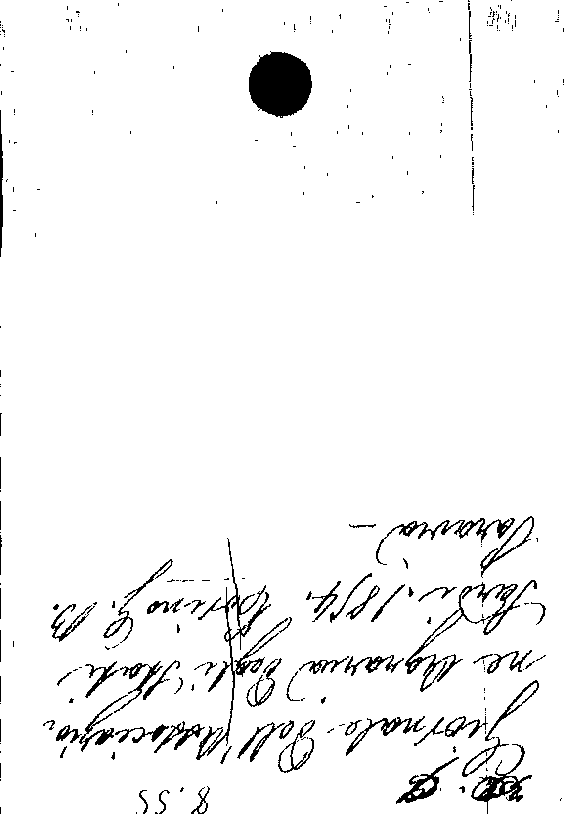 8.55
Giornale dell'Associazio-
ne Agraria degli Stati
Sardi. 1854. Torino G. B.
Paravia —